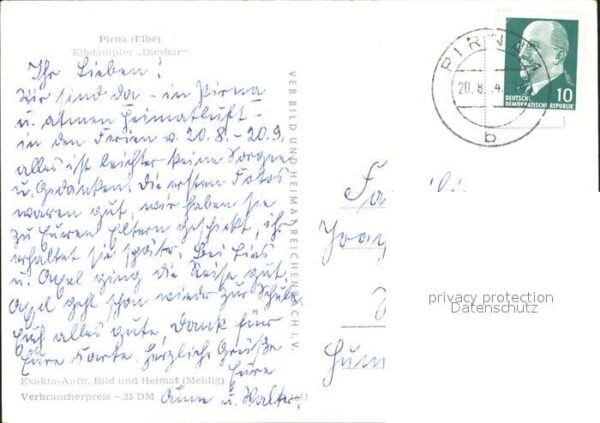 Pirna (Elbe)
Elbdampfer „Diesbar"
Ihr Lieben!
Wir sind da - in Pirna
u. atmen Heimatluft -
in den Ferien v. 20.8. - 20.9.
alles ist leichter keine Sorgen
u. Gedanken. Die ersten Fotos
waren gut, wir haben sie
zu Euren Eltern geschickt, ihr
erhaltet sie später. Bei
u. ging die Reise gut
geht schon wieder zur Schule
Euch alles gute, Dank für
Eure Karte. Herzliche Grüße
Eure
u. Walter.
Exakta-Aufn. Bild und Heimat (Mehlig)
Verbraucherpreis -,25 DM
VEB BILD UND HEIMAT REICHENBACH I. V.
PIRNA 1
20.8.
b
10
DEUTSCHE
DEMOKRATISCHE REPUBLIK
privacy protection
Datenschutz